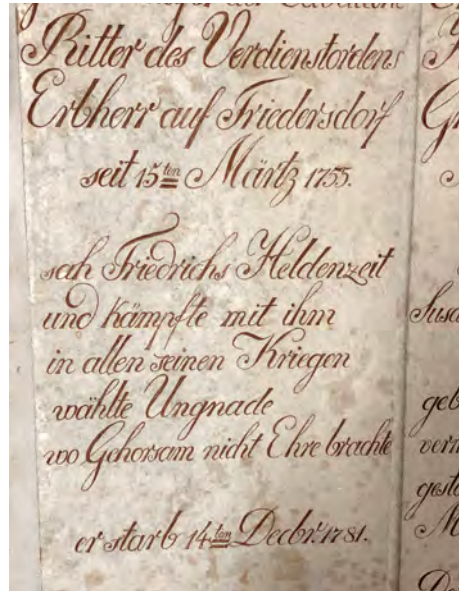 der Cavallerie
Ritter des Verdienstordens
Erbherr auf Friedersdorf
seit 15ten Märtz 1755.
sah Friedrichs Heldenzeit
und kämpfte mit ihm
in allen seinen Kriegen
wählte Ungnade
wo Gehorsam nicht Ehre brachte
er starb 14ten Decbr. 1781.